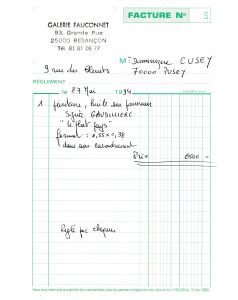 GALERIE FAUCONNET
93, Grande Rue
25000 BESANÇON
Tél. 81 81 08 77
FACTURE N° 5
M Dominique CUSEY
9 rue des
70000 PUSEY
RÈGLEMENT
le 27 Mai 1994
1 peinture, huile sur panneau
Signée
"le plat pays"
format : 0,55 x 0,38
dans son encadrement
Prix 6500 -
Réglé par chèques